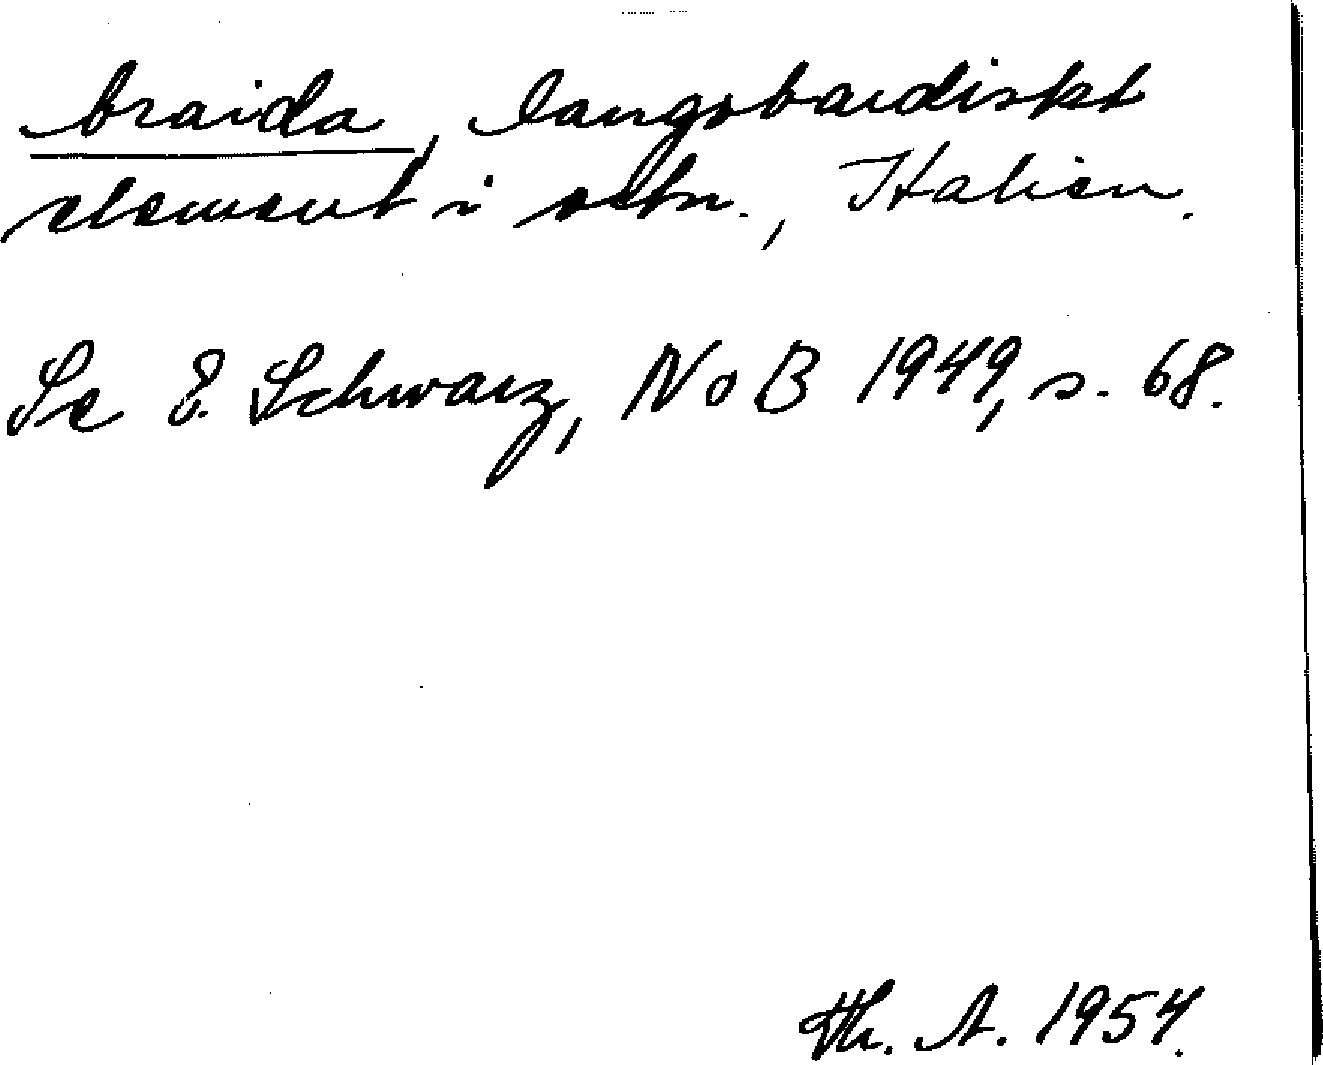 braida, langobardiskt
element i ortn., Italien.
Se E. Schwarz, NoB 1949, s. 68.
Th. A. 1954.